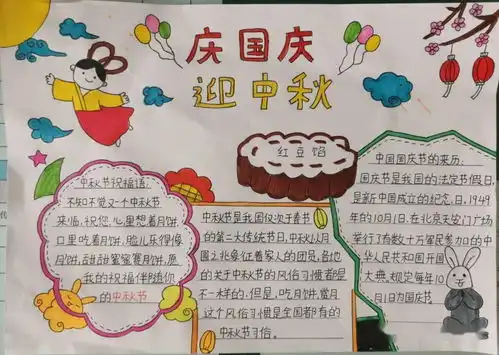 庆国庆
迎中秋
红豆馅
中秋节祝福语:
不知不觉又个中秋节
来临,祝您,心里想着月饼,
口里吃着月饼,脸儿乐得像
月饼,甜甜蜜蜜赛月饼,愿
我的祝福伴随你
的中秋节
中秋节是我国仅次于春节
的第二大传统节日,中秋以月
圆之兆象征着家人的团员,各地
的关于中秋节的风俗习惯者是
不一样的.但是,吃月饼,赏月
这个风俗习惯是全国都有的
中秋节习俗。
中国国庆节的来历:
国庆节是我国的法定节假日,
是新中国成立的纪念,日,1949
年的10月1日,在北京天安门广场
举行了有数十万军民参加的中
华人民共和国开国
大典.规定每年10
月1日为国庆节